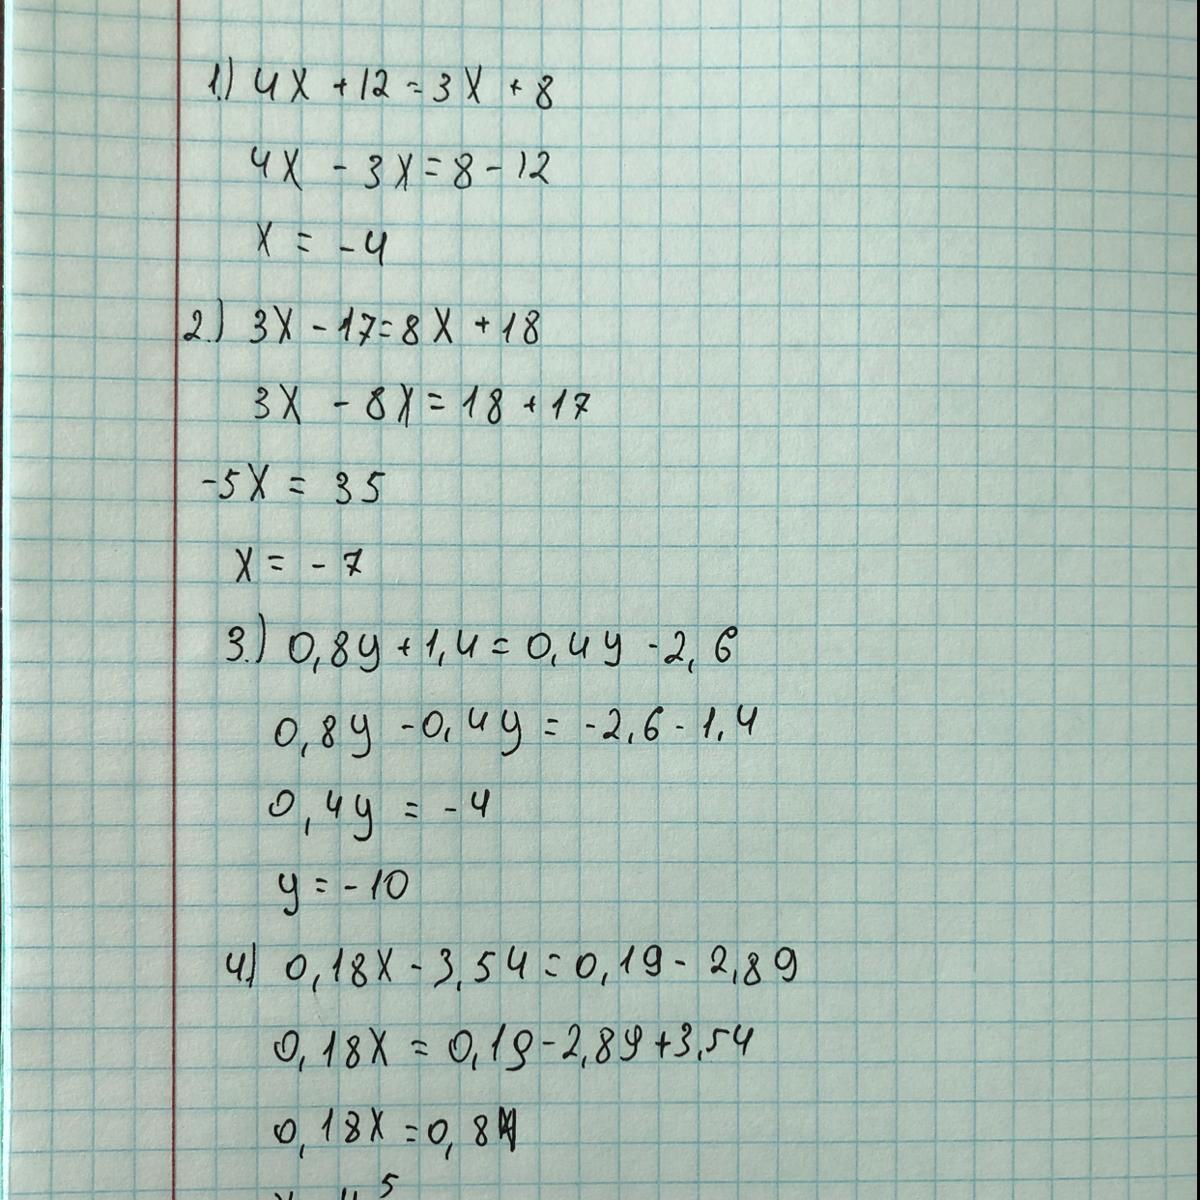 1.) 4x + 12 = 3x + 8
4x - 3x = 8 - 12
x = -4
2.) 3x - 17 = 8x + 18
3x - 8x = 18 + 17
-5x = 35
x = -7
3.) 0,8y + 1,4 = 0,4y - 2,6
0,8y - 0,4y = -2,6 - 1,4
0,4y = -4
y = -10
4) 0,18x - 3,54 = 0,19 - 2,89
0,18x = 0,19 - 2,89 + 3,54
0,18x = 0,84